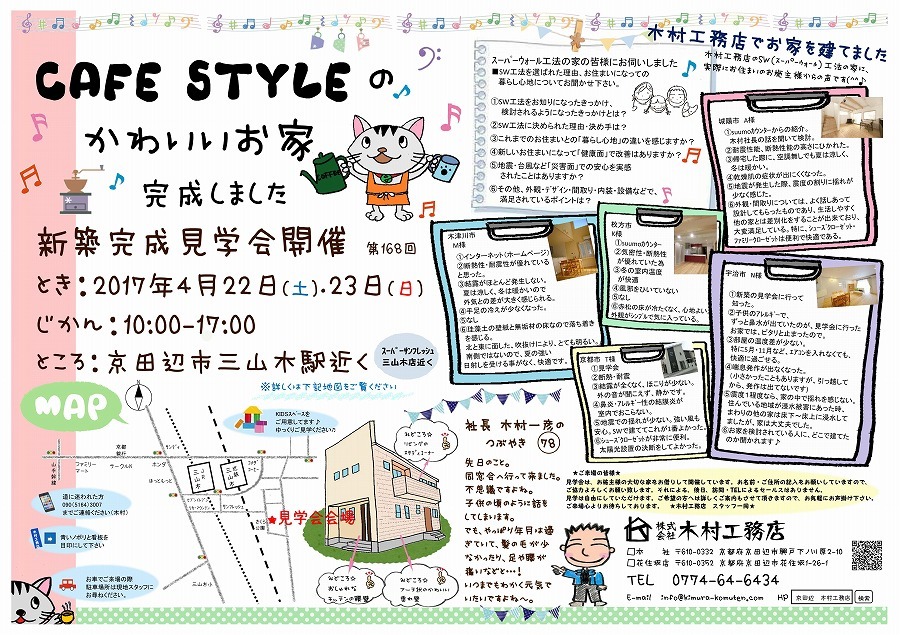 CAFE STYLEの
かわいいお家
完成しました
新築完成見学会開催 第168回
とき：2017年4月22日(土)・23日(日)
じかん：10:00-17:00
ところ：京田辺市三山木駅近く
スーパーサンフレッシュ
三山木店近く
※詳しくは下記地図をご覧ください
MAP
KIDSスペースを
ご用意してます♪
ゆっくりご見学ください♪
山手幹線
ファミリーマート
サークルK
ホンダ
サンディ
ほっともっと
JR三山木
近鉄三山木
サンフレッシュ
さくら公園
三山木小
★見学会会場
道に迷われた方
090(5164)3007
までご連絡ください(木村)
青いノボリと看板を
目印にして下さい
お車でご来場の際
駐車場所は現地スタッフに
お尋ねください。
木村工務店でお家を建てました
木村工務店のSW(スーパーウォール)工法の家に、
実際にお住まいのお施主様からの声です(^^♪
スーパーウォール工法の家の皆様にお伺いしました
■SW工法を選ばれた理由、お住まいになっての
暮らし心地についてお聞かせ下さい。
①SW工法をお知りになったきっかけ、
検討されるようになったきっかけとは？
②SW工法に決められた理由・決め手は？
③これまでのお住まいとの「暮らし心地」の違いを感じますか？
④新しいお住まいになって「健康面」で改善はありますか？
⑤地震・台風など「災害面」での安心を実感
されたことはありますか？
⑥その他、外観・デザイン・間取り・内装・設備などで、
満足されているポイントは？
城陽市 A様
①suumoカウンターからの紹介。
木村社長の話を聞いて検討。
②耐震性能、断熱性能の高さにひかれた。
③帰宅した際に、空調無しでも夏は涼しく、
冬は暖かい。
④乾燥肌の症状が出にくくなった。
⑤地震が発生した際、震度の割りに揺れが
少なく感じた。
⑥外観・間取りについては、よく話しあって
設計してもらったものであり、生活しやすく
他の家とは差別化をすることが出来ており、
大変満足している。特に、シューズクローゼット・
ファミリークローゼットは便利で快適である。
木津川市
M様
①インターネット(ホームページ)
②断熱性・耐震性が優れている
と思った。
③結露がほとんど発生しない。
夏は涼しく、冬は暖かいので
外気との差が大きく感じられる。
④手足の冷えが少なくなった。
⑤なし
⑥珪藻土の壁紙と無垢材の床なので落ち着き
を感じる。
北と東に面した、吹抜けにより、とても明るい。
南側ではないので、夏の強い
日射しを受ける事がなく、快適です。
枚方市
K様
①suumoカウンター
②気密性・断熱性
が優れていた為
③冬の室内温度
が快適
④風邪をひいていない
⑤なし
⑥赤松の床が冷たくなく、心地よい
外観がシンプルで気に入っている。
宇治市 N様
①新築の見学会に行って
知った。
②子供のアレルギーで、
ずっと鼻水が出ていたのが、見学会に行った
お家では、ピタリと止まったので。
③部屋の温度差が少ない。
特に5月・11月など、エアコンを入れなくても、
快適に過ごせる。
④喘息発作が出なくなった。
(小さかったこともありますが、引っ越して
から、発作は出てないです)
⑤震度1程度なら、家の中で揺れを感じない。
住んでいる地域が浸水被害にあった時、
まわりの他の家は床下～床上に浸水して
ましたが、家は大丈夫でした。
⑥お家を検討されている人に、どこで建てた
のか聞かれます♪
京都市 T様
①見学会
②断熱・耐震
③結露が全くなく、ほこりが少ない。
外の音が聞こえず、静かです。
④鼻炎・アレルギー性の結膜炎が
室内でおこらない。
⑤地震での揺れが少ない。強い風も
安心。SWで建ててこれが1番よかった。
⑥シューズクローゼットが非常に便利。
太陽光設置の決断をしてよかった。
社長 木村一彦の
つぶやき 78
先日のこと。
同窓会へ行って来ました。
不思議ですよね。
子供の頃のように話を
してしまいます。
でも、やっぱり年月は過
ぎていて、髪の毛が少
なかったり、足や腰が
痛いなどと…！
いつまでもわかく元気で
いたいですよね～。
みどころ☆
リビングの
スタディコーナー
みどころ☆
おしゃれな
キッチンの腰壁
みどころ☆
アーチ状のかわいい
垂れ壁
★ご来場の皆様★
見学会は、お施主様の大切な家をお借りして開催しています。お名前・ご住所の記入をお願いしていますので、
ご協力よろしくお願い致します。それによる、後日、訪問・TELによるセールスはありません。
見学は自由にしていただけます。ご希望の方へは詳しくご案内もさせて頂きますので、お気軽にお声掛け下さい。
ご来場心よりお待ちしております。 ★木村工務店 スタッフ一同★
株式会社木村工務店
□本 社 〒610-0332 京都府京田辺市興戸下ノ川原2-10
□花住坂店 〒610-0352 京都府京田辺市花住坂1-26-1
TEL 0774-64-6434
E-mail info@kimura-komuten.com HP 京田辺 木村工務店 検索